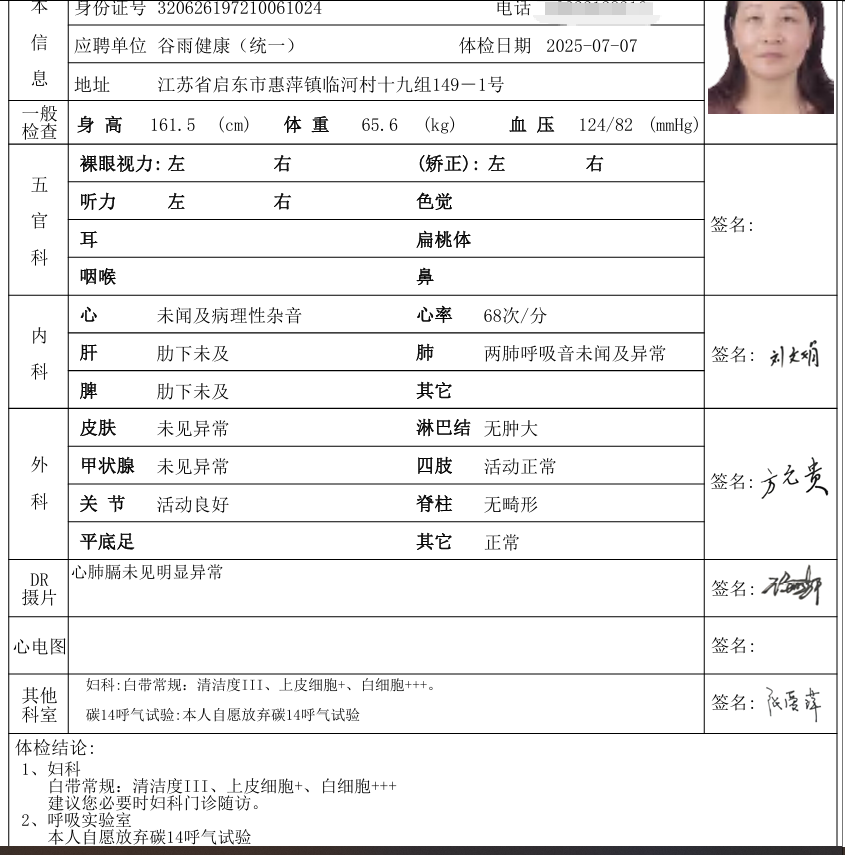 本
信
息
身份证号 320626197210061024 电话
应聘单位 谷雨健康（统一） 体检日期 2025-07-07
地址 江苏省启东市惠萍镇临河村十九组149－1号
一般
检查
身 高 161.5 (cm) 体 重 65.6 (kg) 血 压 124/82 (mmHg)
五
官
科
裸眼视力: 左 右 (矫正): 左 右
听力 左 右 色觉
耳 扁桃体
咽喉 鼻
签名:
内
科
心 未闻及病理性杂音 心率 68次/分
肝 肋下未及 肺 两肺呼吸音未闻及异常
脾 肋下未及 其它
签名:
外
科
皮肤 未见异常 淋巴结 无肿大
甲状腺 未见异常 四肢 活动正常
关 节 活动良好 脊柱 无畸形
平底足 其它 正常
签名: 方元贵
DR
摄片
心肺膈未见明显异常
签名:
心电图
签名:
其他
科室
妇科:白带常规: 清洁度III、上皮细胞+、白细胞+++。
碳14呼气试验:本人自愿放弃碳14呼气试验
签名:
体检结论:
1、妇科
白带常规: 清洁度III、上皮细胞+、白细胞+++
建议您必要时妇科门诊随访。
2、呼吸实验室
本人自愿放弃碳14呼气试验